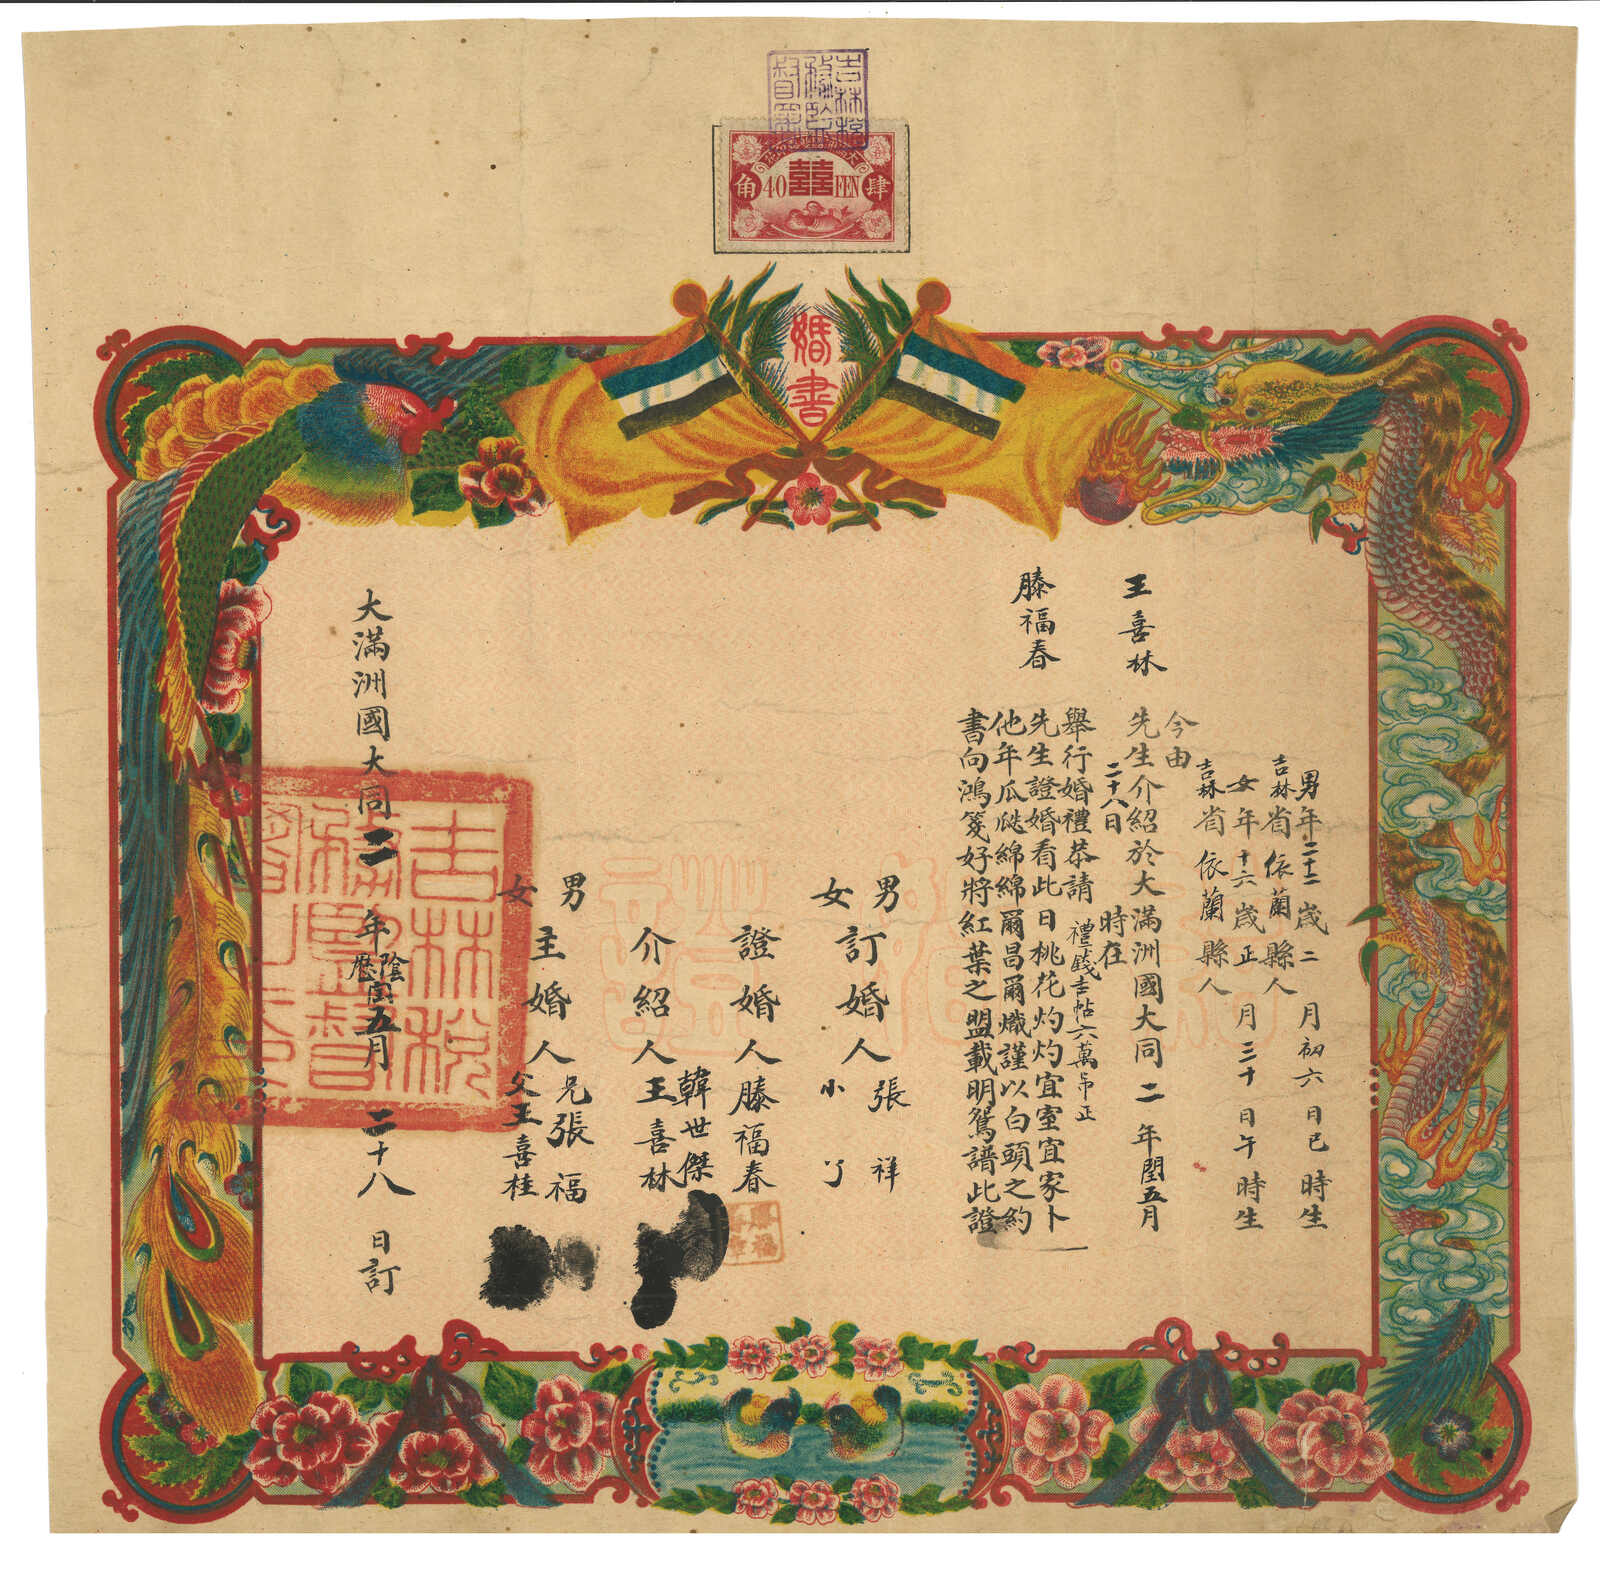 吉林稅務監督署
角 40 囍 FEN 肆
婚書
男年二十二歲二月初六日巳時生
吉林省依蘭縣人
女年十六歲正月三十日午時生
吉林省依蘭縣人
今由
王喜林先生介紹於大滿洲國大同二年閏五月
二十八日時在
舉行婚禮恭請 禮錢吉帖六萬吊正
滕福春先生證婚看此日桃花灼灼宜室宜家卜
他年瓜瓞綿綿爾昌爾熾謹以白頭之約
書向鴻箋好將紅葉之盟載明鴛譜此證
男女訂婚人 張祥 小丫
證婚人滕福春
介紹人韓世傑 王喜林
男女主婚人 兄張福 父王喜桂
大滿洲國大同二年陰曆閏五月二十八日訂
吉林稅務監督